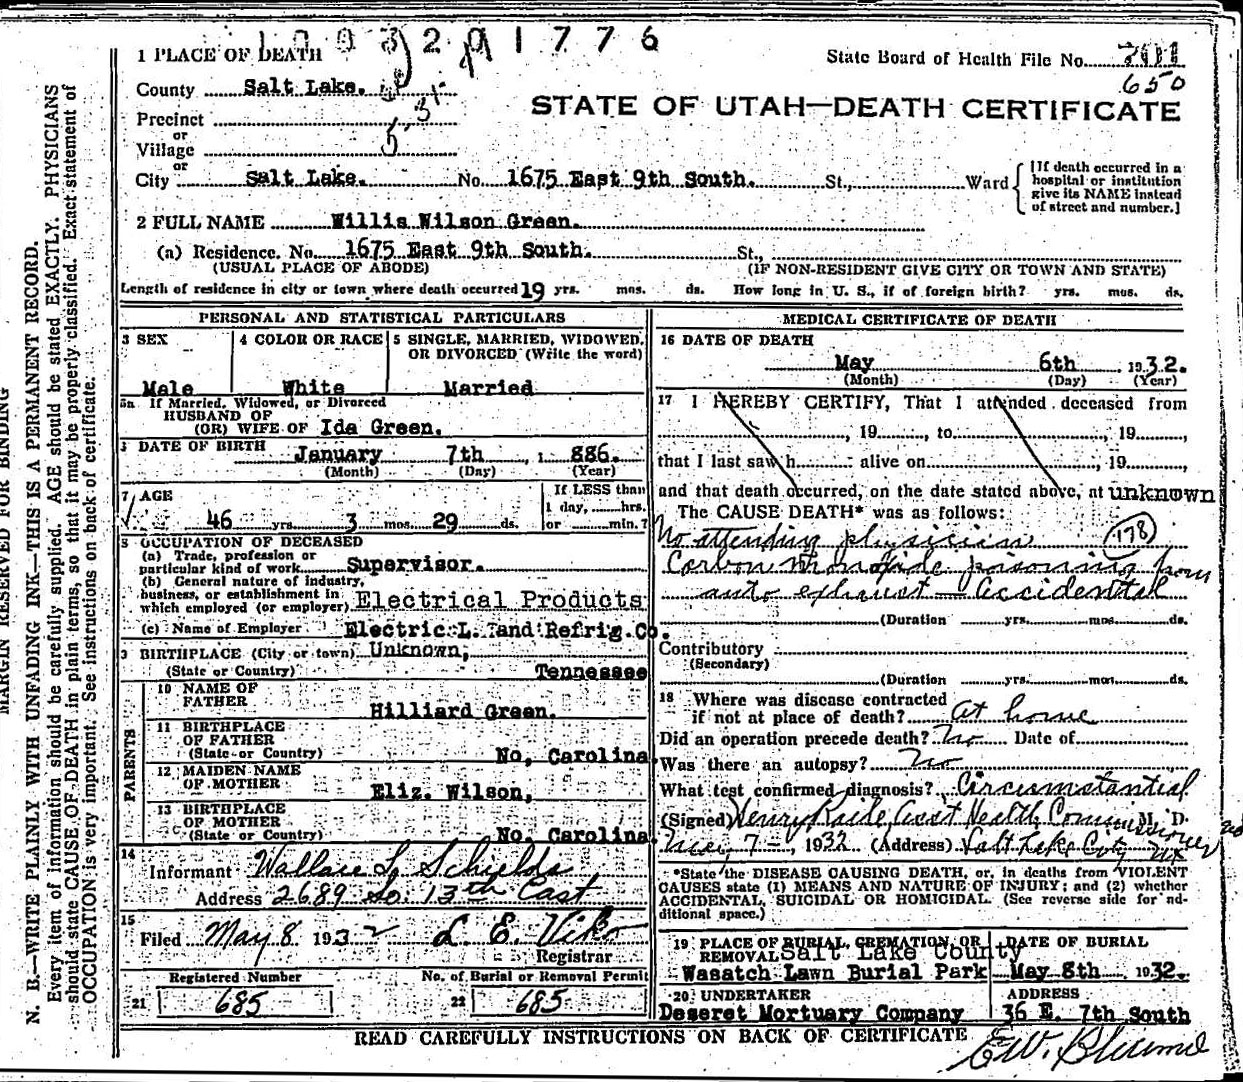 1 PLACE OF DEATH
State Board of Health File No. 701
650
County Salt Lake.
STATE OF UTAH—DEATH CERTIFICATE
Precinct
or
Village
or
City Salt Lake. No. 1675 East 9th South. St., Ward
[If death occurred in a hospital or institution give its NAME instead of street and number.]
2 FULL NAME Willis Wilson Green.
(a) Residence. No. 1675 East 9th South. St.,
(USUAL PLACE OF ABODE) (IF NON-RESIDENT GIVE CITY OR TOWN AND STATE)
Length of residence in city or town where death occurred 19 yrs. mos. ds. How long in U. S., if of foreign birth? yrs. mos. ds.
PERSONAL AND STATISTICAL PARTICULARS
3 SEX
Male
4 COLOR OR RACE
White
5 SINGLE, MARRIED, WIDOWED, OR DIVORCED (Write the word)
Married
5a If Married, Widowed, or Divorced
HUSBAND OF
(OR) WIFE OF Ida Green.
DATE OF BIRTH January 7th, 1 886.
(Month) (Day) (Year)
7 AGE
46 yrs. 3 mos. 29 ds.
If LESS than 1 day, hrs. or min.?
8 OCCUPATION OF DECEASED
(a) Trade, profession or particular kind of work Supervisor.
(b) General nature of industry, business, or establishment in which employed (or employer) Electrical Products
(c) Name of Employer Electric L. and Refrig. Co.
BIRTHPLACE (City or town) Unknown,
(State or Country) Tennessee
PARENTS
10 NAME OF FATHER Hilliard Green.
11 BIRTHPLACE OF FATHER
(State or Country) No, Carolina.
12 MAIDEN NAME OF MOTHER Eliz. Wilson,
13 BIRTHPLACE OF MOTHER
(State or Country) No, Carolina.
14
Informant Wallace L. Schields
Address 2689 So. 13th East
15
Filed May 8 1932 L. E. Viko
Registrar
Registered Number
21 685
No. of Burial or Removal Permit
22 685
MEDICAL CERTIFICATE OF DEATH
16 DATE OF DEATH
May 6th 1932.
(Month) (Day) (Year)
17 I HEREBY CERTIFY, That I attended deceased from
, 19 , to , 19 ,
that I last saw h alive on , 19 ,
and that death occurred, on the date stated above, at unknown
The CAUSE DEATH* was as follows:
No attending physician 178
Carbon monoxide poisoning from
auto exhaust — Accidental
(Duration yrs. mos. ds.
Contributory
(Secondary)
(Duration yrs. mos. ds.
18 Where was disease contracted
if not at place of death? At home
Did an operation precede death? No Date of
Was there an autopsy? No
What test confirmed diagnosis? Circumstantial
(Signed) Henry Raile Asst Health Commissioner M. D.
May 7 -, 1932 (Address) Salt Lake City
*State the DISEASE CAUSING DEATH, or, in deaths from VIOLENT
CAUSES state (1) MEANS AND NATURE OF INJURY; and (2) whether
ACCIDENTAL, SUICIDAL OR HOMICIDAL. (See reverse side for ad-
ditional space.)
19 PLACE OF BURIAL, CREMATION, OR REMOVAL Salt Lake County
Wasatch Lawn Burial Park
DATE OF BURIAL
May 8th, 1932.
20 UNDERTAKER
Deseret Mortuary Company
ADDRESS
36 E. 7th South
READ CAREFULLY INSTRUCTIONS ON BACK OF CERTIFICATE
MARGIN RESERVED FOR BINDING
N. B.—WRITE PLAINLY WITH UNFADING INK—THIS IS A PERMANENT RECORD.
Every item of information should be carefully supplied. AGE should be stated EXACTLY. PHYSICIANS
should state CAUSE OF DEATH in plain terms, so that it may be properly classified. Exact statement of
OCCUPATION is very important. See instructions on back of certificate.